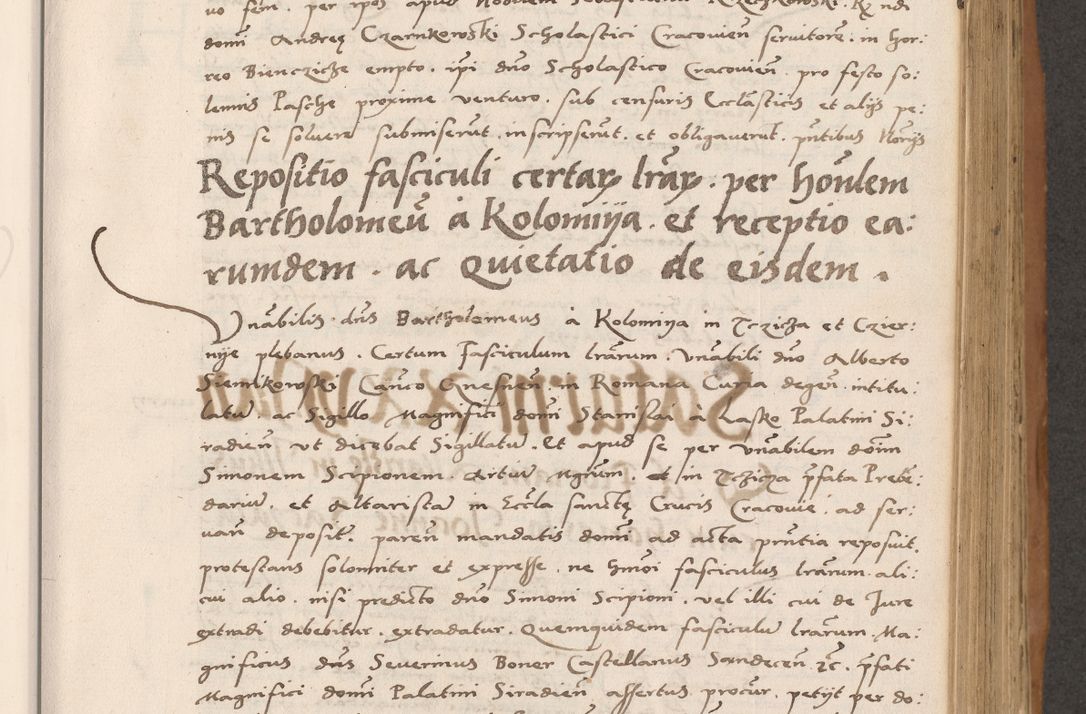 uo sem. per ipos apud Nobilem Sebastianum Krzeczkowski. Rndi
domi Andreę Czarnkowski Scholastici Cracovieñ servitore. in hor:
reo Biencziche empto. ipi dno Scholastico Cracovieñ. pro festo so:
lennis Pasche proxime venturo. sub censuris Ecclasticis et alijs pe:
nis se solvere submiserūt. inscripserūt. et obligaverūt. pñtibus Norijs
Repositio fasciculi certarꝝ lrarꝝ. per honlem
Bartholomeū à Kolomiya. et receptio ea:
rumdem. ac quietatio de eisdem.
Vnabilis. dns Bartholomeus à Kolomiya in Tczicza et Czier:
nije plebanus. Certum Fasciculum lrarum. Vnabili dno Alberto
Siemikowski Canco Gnesneñ. in Romana Curia degeñ. intitu:
latū. ac Sigillo Magnifici domi Stanislai à Lasko Palatini Si:
radieñ vt dicebat Sigillatū. Et apud se per vnabilem doim
Simonem Scipionem. Artiū Mgrum. et in Tczicza pfata Prebe:
dariū. et Altaristā in Eccla sanctę Crucis Cracovie. ad ser:
uañ deposit. pareñ mandatis domi ad acta pñtia reposuit.
protestans solomniter et expresse. ne hmoi fasciculus lrarum. ali:
cui alio. nisi predicto dno Simoni Scipioni. vel illi cui de Jure
extradi debebitur. extradatur. Quemquidem fasciculū lrarum. Ma:
gnificus dns Severinus Boner Castellanus Sandeceñ. zc. pfati
Magnifici domi Palatini Siradieñ assertus procur. petijt per do: